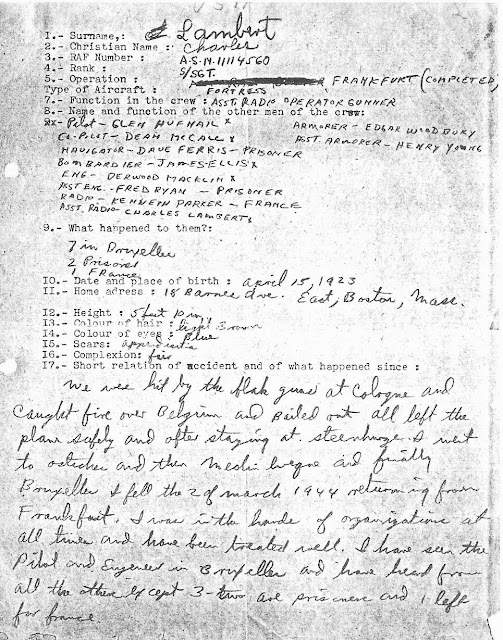 1.- Surname,: Lambert
2.- Christian Name : Charles
3.- RAF Number : A.S.N. 11114560
4.- Rank : S/SGT.
5.- Operation : FRANKFURT (COMPLETED)
Type of Aircraft : FORTRESS
7.- Function in the crew : ASST. RADIO OPERATOR GUNNER
8.- Name and function of the other men of the crew:
Pilot - GLEN NUFHAIL x ARMORER - EDGAR WOODBURY
CO-PILOT - DEAN McCALL x ASST. ARMORER - HENRY YOUNG
NAVIGATOR - DAVE FERRIS - PRISONER
BOMBARDIER - JAMES ELLIS x
ENG - DERWOOD MACKLIN x
ASST ENG. - FRED RYAN - PRISONER
RADIO - KENNETH PARKER - FRANCE
ASST. RADIO CHARLES LAMBERT x
9.- What happened to them?:
7 in Bruxelles
2 Prisoners
1 France
10.- Date and place of birth : April 15, 1923
11.- Home adress : 18 Barnes Ave. East, Boston, Mass.
12.- Height : 5 feet 10 in
13.- Colour of hair : Light Brown
14.- Colour of eyes : Blue
15.- Scars: Appendicitis
16.- Complexion: fair
17.- Short relation of accident and of what happened since :
We was hit by the flak guns at Cologne and
caught fire over Belgium and Bailed out all left the
plane safely and after staying at steenhuyze. I went
to and then and finally
Bruxelles I fell the 2 of march 1944 returning from
Frankfurt. I was in the hands of organizations at
all times and have been treated well. I have seen the
Pilot and Engineer in Bruxelles and have heard from
all the others except 3 - two are prisoners and 1 left
for france